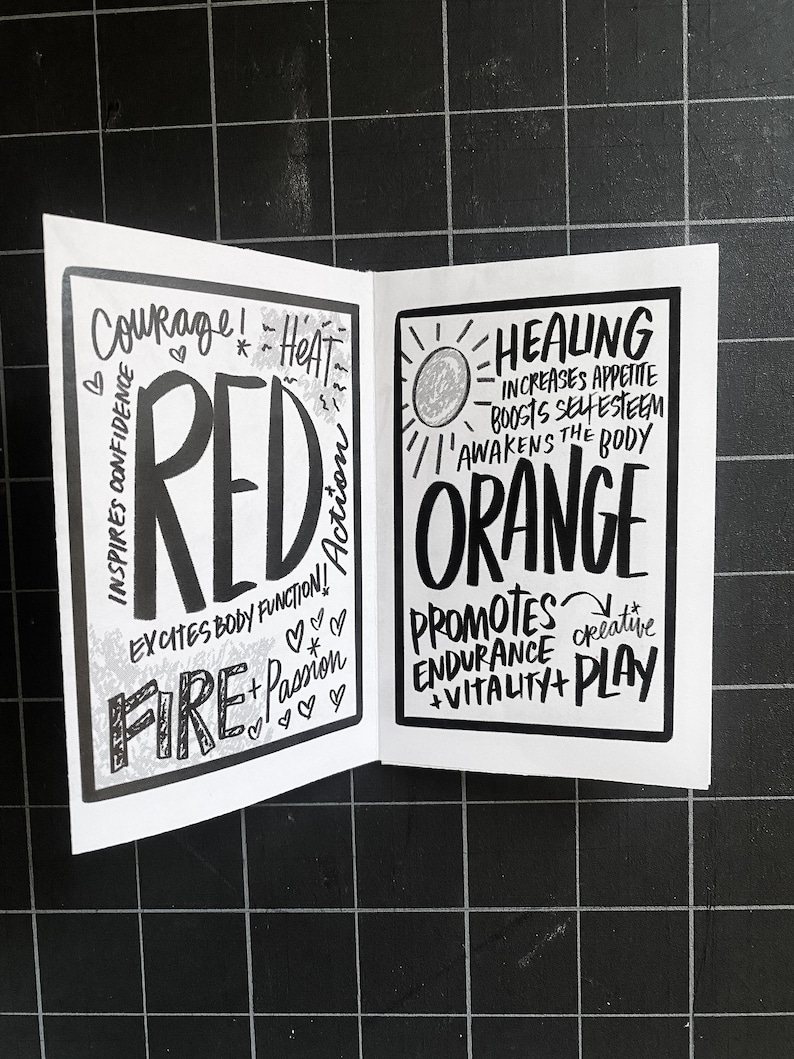 Courage!
HEAT
INSPIRES CONFIDENCE
RED
Action
EXCITES BODY FUNCTION!
FIRE + Passion
HEALING
INCREASES APPETITE
BOOSTS SELF ESTEEM
AWAKENS THE BODY
ORANGE
PROMOTES
ENDURANCE
+ VITALITY +
creative
PLAY